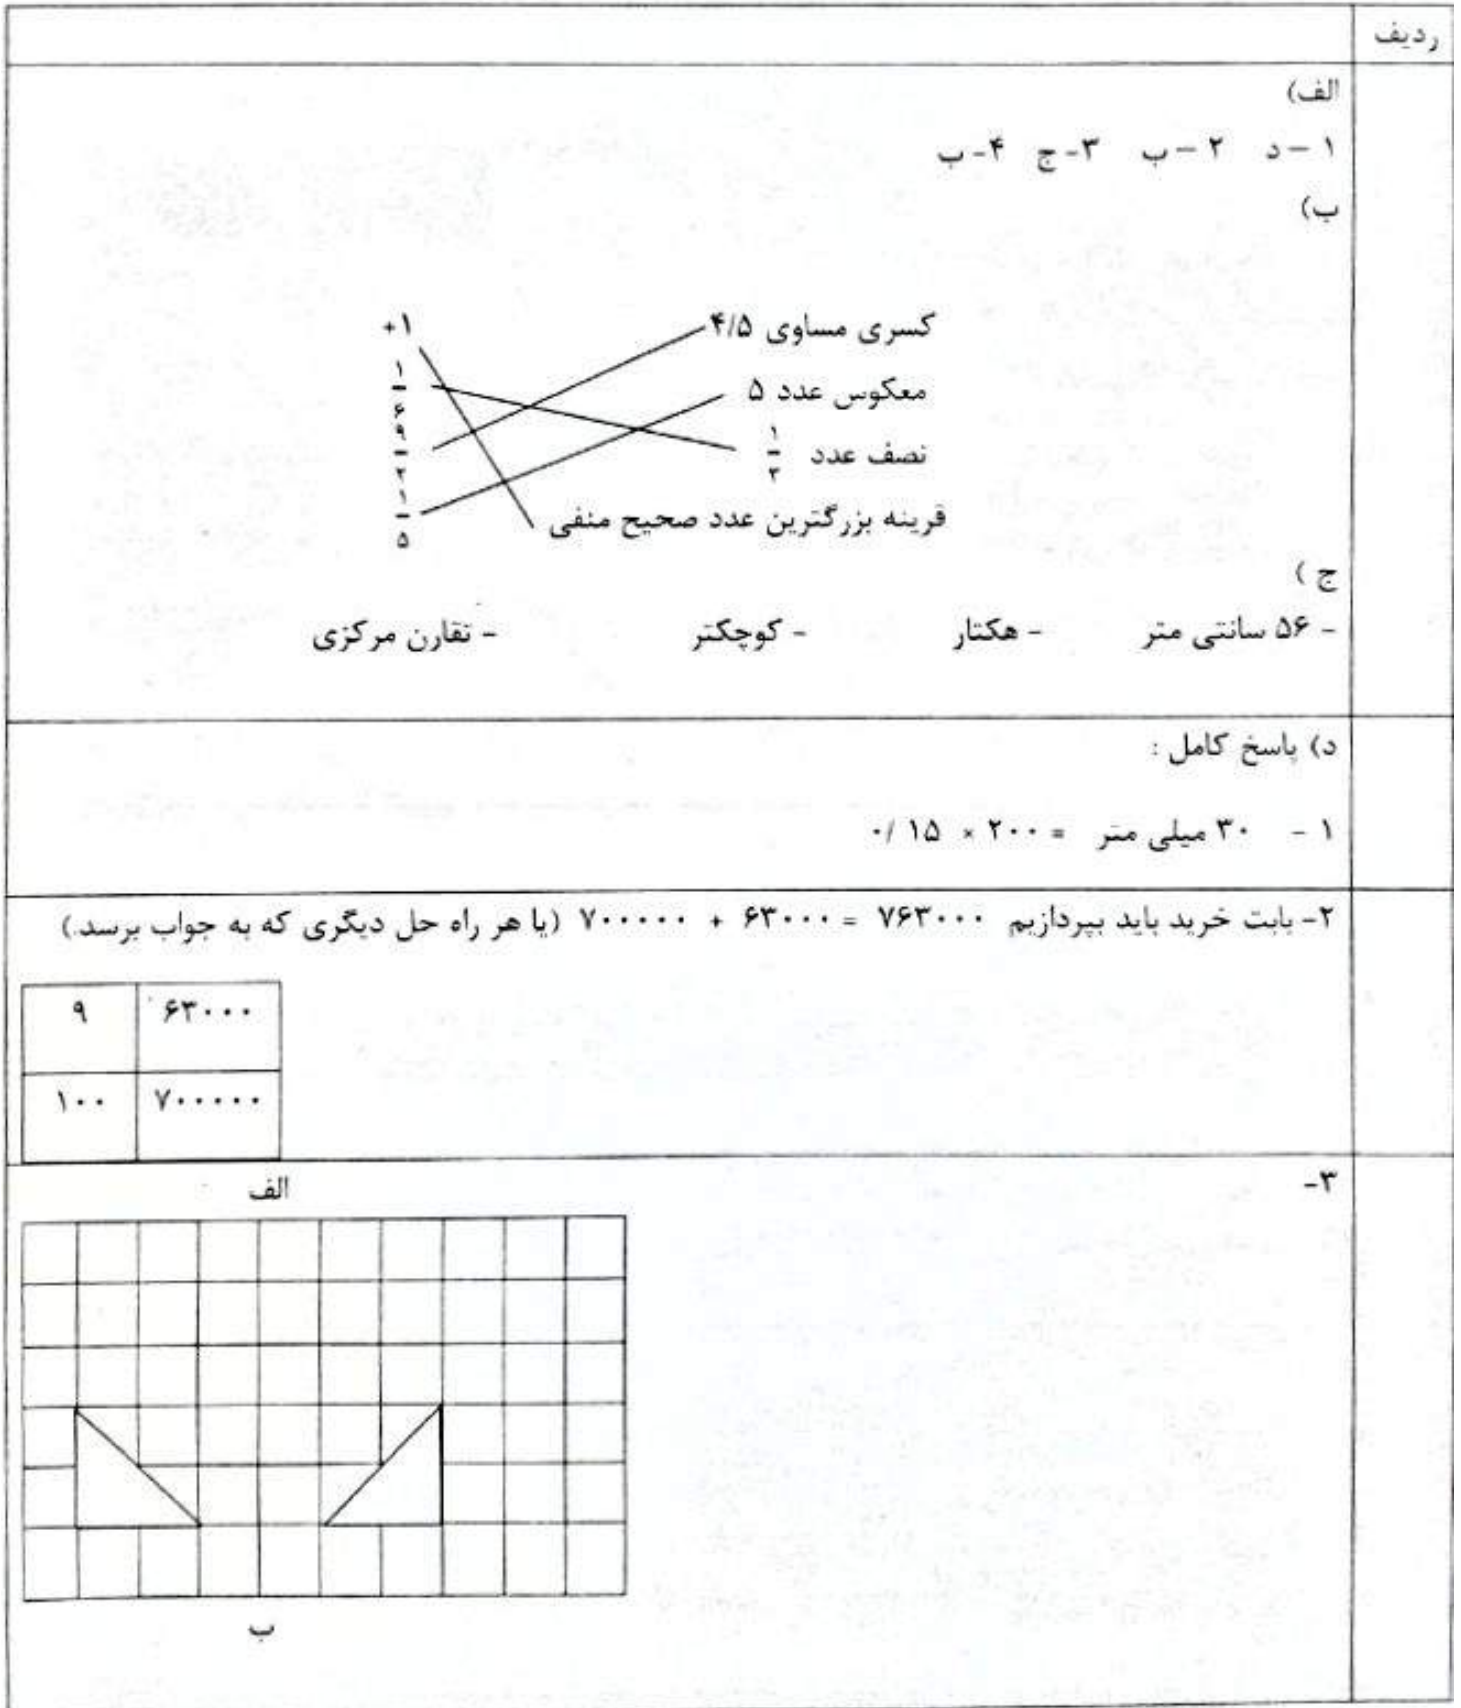 ردیف
الف)
۱ – د   ۲ – ب   ۳- ج   ۴- ب
ب)
کسری مساوی ۴/۵
+۱
معکوس عدد ۵
۱/۶
نصف عدد ۱/۳
۹/۲
قرینه بزرگترین عدد صحیح منفی
۱/۵
ج )
- ۵۶ سانتی متر   - هکتار   - کوچکتر   - تقارن مرکزی
د) پاسخ کامل :
۱ -   ۳۰ میلی متر = ۲۰۰ × ۰/ ۱۵
۲- بابت خرید باید بپردازیم ۷۶۳۰۰۰ = ۶۳۰۰۰ + ۷۰۰۰۰۰ (یا هر راه حل دیگری که به جواب برسد.)
۹   ۶۳۰۰۰
۱۰۰   ۷۰۰۰۰۰
۳-
الف
ب